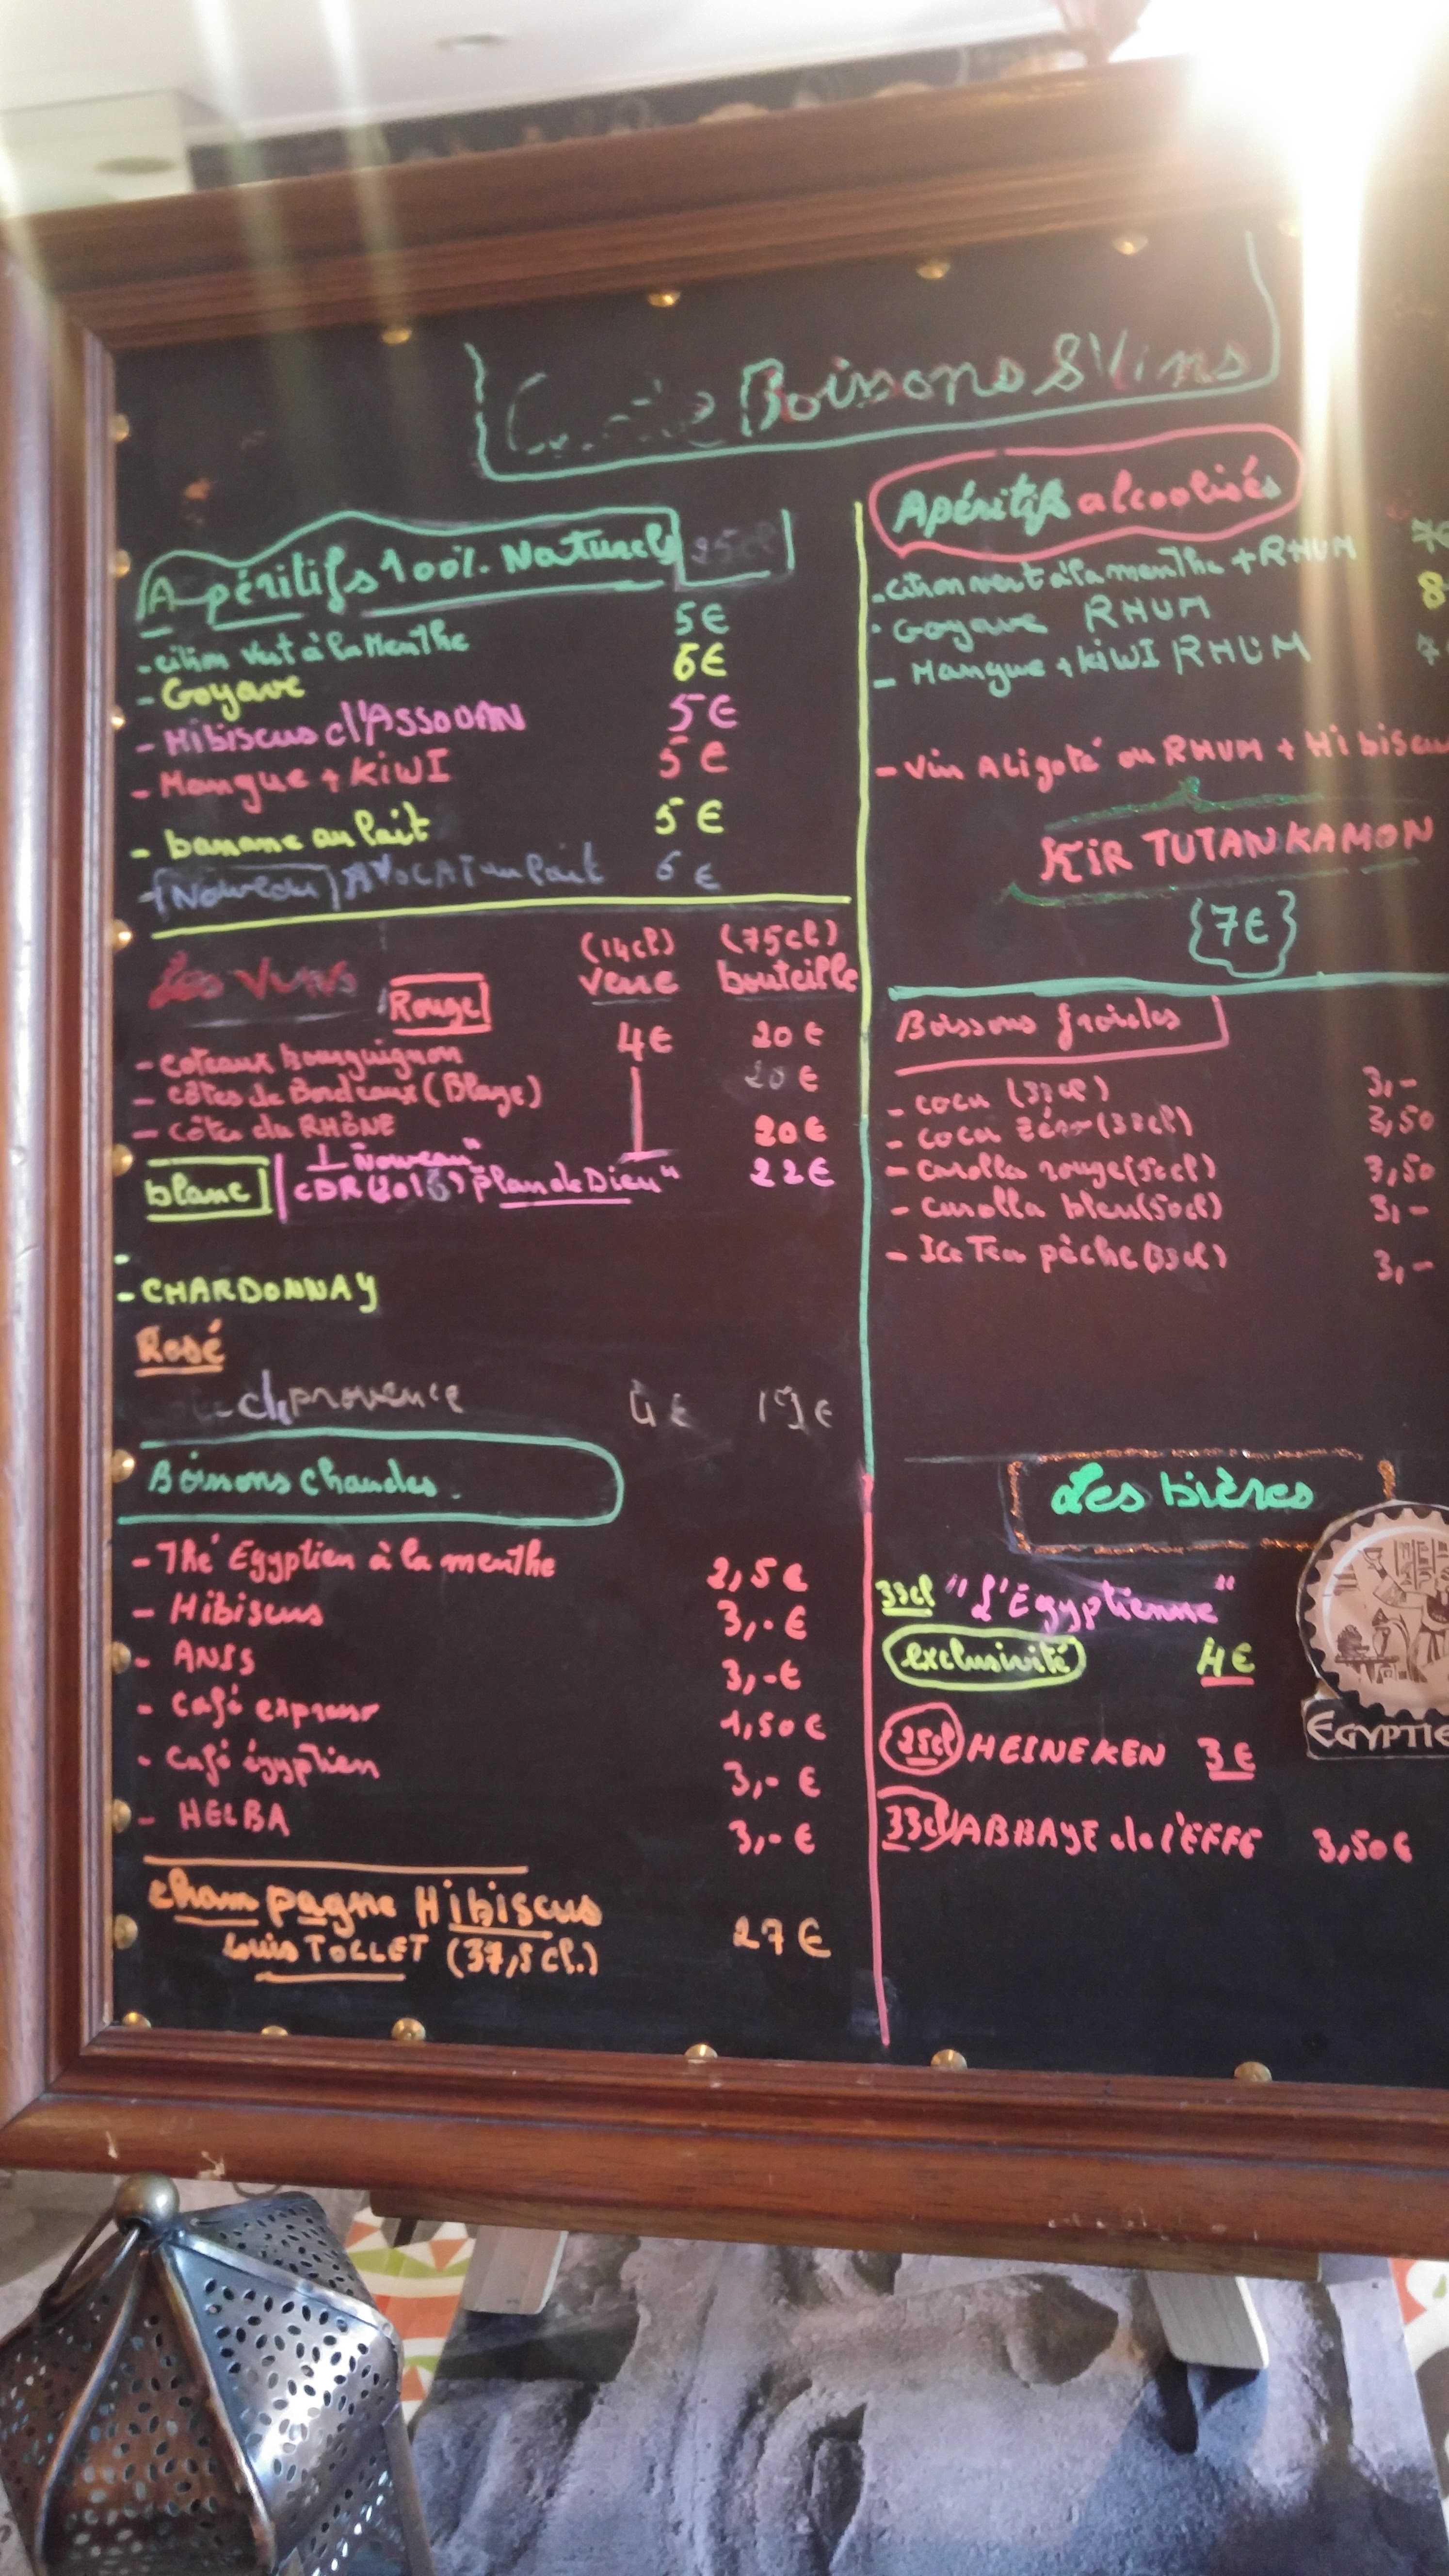 Carte Boissons & Vins
Apéritifs 100%. Naturels 25cl
- citron vert à la Menthe 5€
- Goyave 6€
- Hibiscus d'ASSOUAN 5€
- Mangue + KiWI 5€
- banane au lait 5€
- (Nouveau) AVOCAT au lait 6€
Les Vins Rouge
(14cl) (75cl)
verre bouteille
- coteaux bourguignon 4€ 20€
- côtes de Bordeaux (Blaye) 20€
- côtes du RHÔNE 20€
"Nouveau"
CDR "Plan de Dieu" 22€
blanc
- CHARDONNAY
Rosé
de provence 4€ 19€
Boissons chaudes.
- Thé Egyptien à la menthe 2,5€
- Hibiscus 3,-€
- ANIS 3,-€
- Café expresso 1,50€
- Café égyptien 3,-€
- HELBA 3,-€
champagne Hibiscus
Louis TOLLET (37,5cl.) 27€
Apéritifs alcoolisés
- citron vert à la menthe + RHUM
- Goyave RHUM 8
- Mangue + KiWI RHUM
- Vin Aligoté ou RHUM + Hibiscu
KIR TUTANKAMON
{7€}
Boissons froides
- coca (33cl) 3,-
- coca zéro (33cl) 3,50
- carolla rouge (50cl) 3,50
- carolla bleu (50cl) 3,-
- Ice Tea pêche (33cl) 3,-
Les bières
33cl "L'Egyptienne"
exclusivité 4€
EGYPTIE
25cl HEINEKEN 3€
33cl ABBAYE de l'EFFE 3,50€